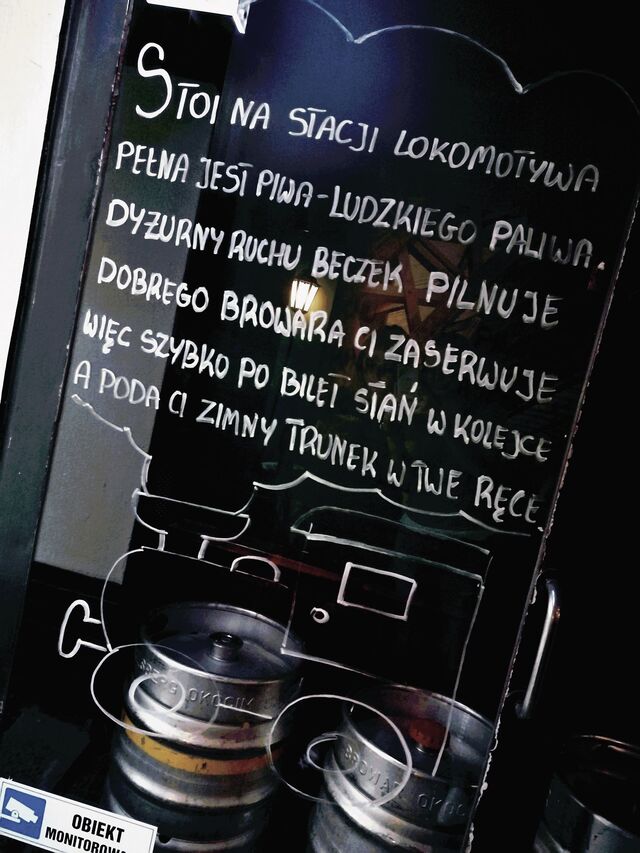 STOI NA STACJI LOKOMOTYWA
PEŁNA JEST PIWA-LUDZKIEGO PALIWA.
DYŻURNY RUCHU BECZEK PILNUJE
DOBREGO BROWARA CI ZASERWUJE
WIĘC SZYBKO PO BILET STAŃ W KOLEJCE
A PODA CI ZIMNY TRUNEK W TWE RĘCE.
OKOCIM
OBIEKT